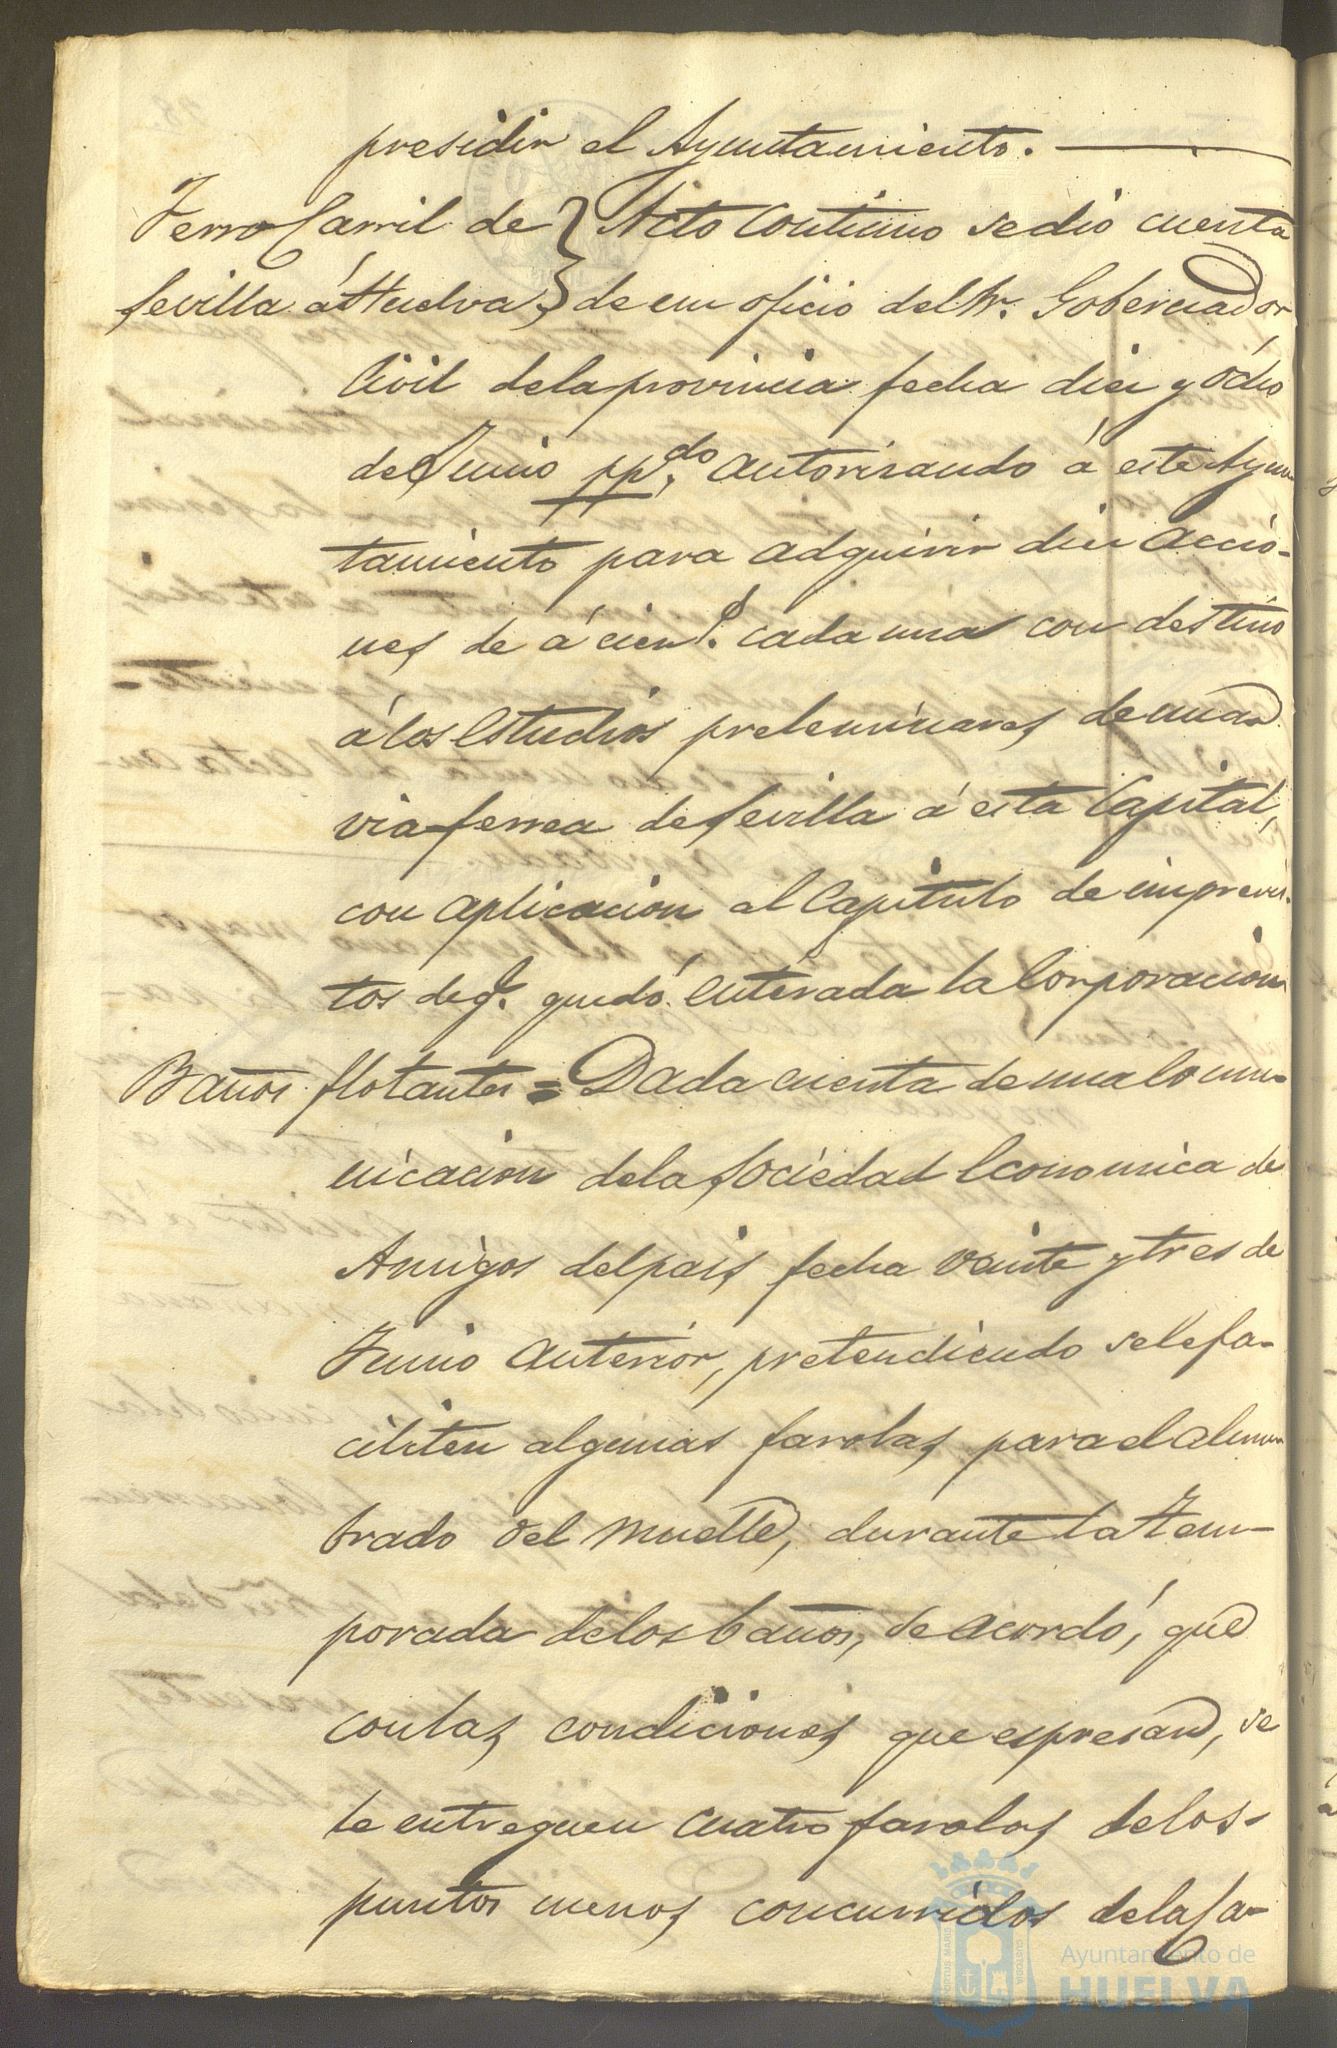 presidir el Ayuntamiento.
Ferro Carril de } Acto contínuo se dió cuenta
Sevilla á Huelva } de un oficio del Sr. Gobernador
Civil de la provincia fecha diez y ócho
de Junio pp.do autorizando á este Ayun
tamiento para adquirir diez accio-
nes de á cien P. cada una con destino
á los Estudios preleminares de una
via-ferrea de Sevilla á esta Capital,
con aplicacion al Capitulo de imprevis-
tos de q.e quedó enterada la Corporacion
Baños flotantes = Dada cuenta de una Comu-
nicacion de la Sociedad Economica de
Amigos del pais, fecha veinte y tres de
Junio anterior, pretendiendo se le fa-
ciliten algunas farolas para el alum
brado del muelle, durante la tem-
porada de los baños, se acordó, que
con las condiciones que espresan, se
le entreguen cuatro farolas de los
puntos menos concurridos de la Ca-
Ayuntamiento de
HUELVA